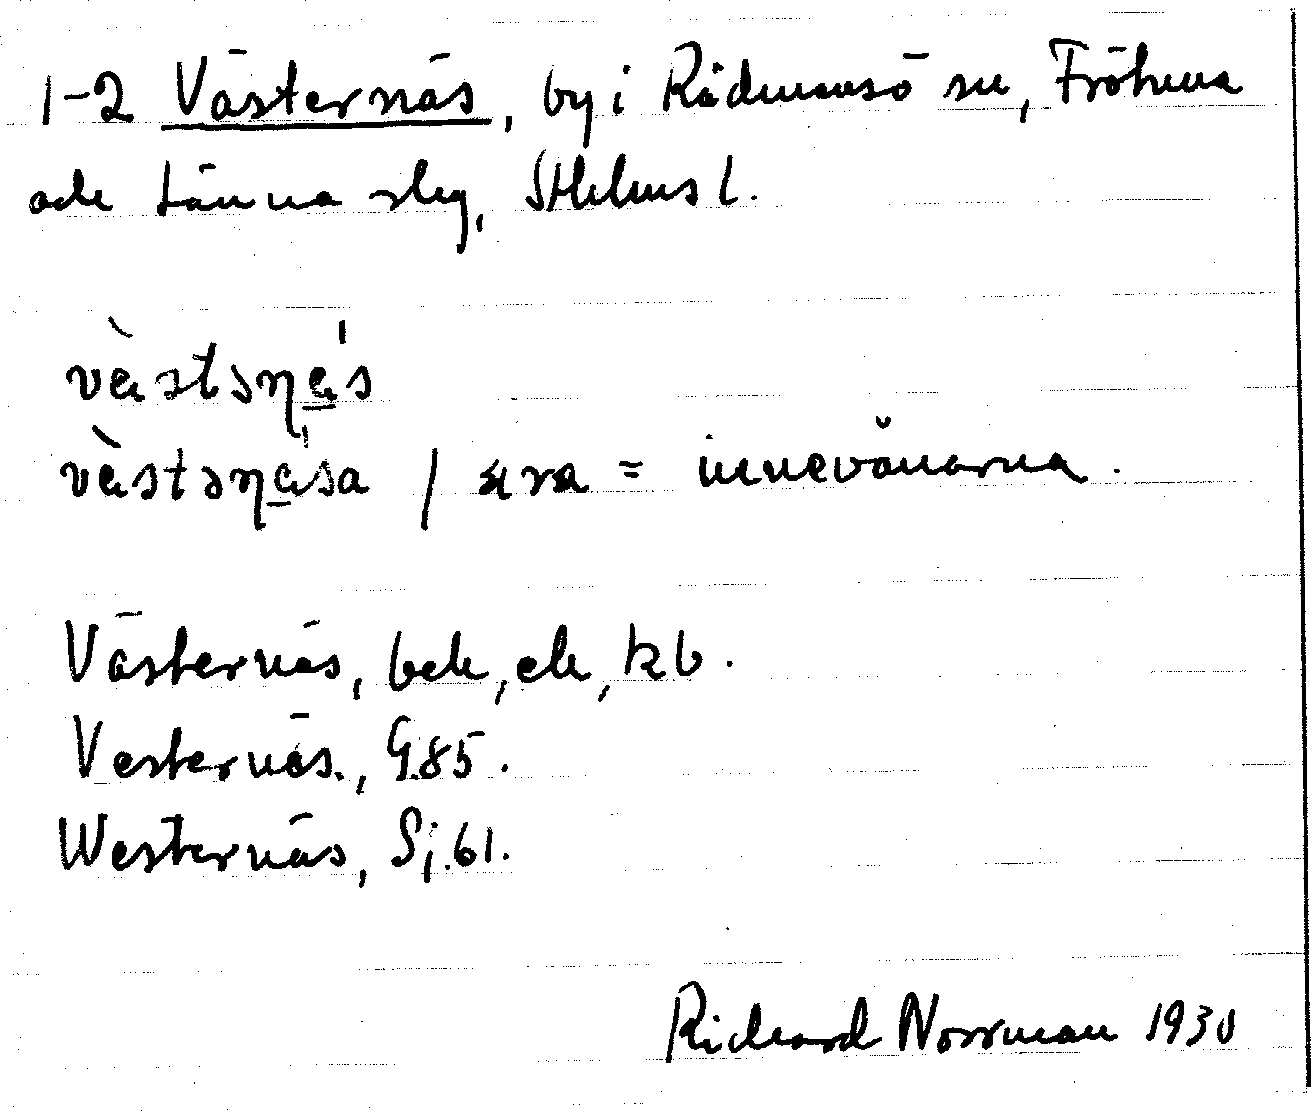 1-2 Västernäs, by i Rådmansö sn, Frötuna
och Länna slg, Sthlms l.
vὲstəɳɛ̲́s
vὲstəɳɛ̲́sa / ɛra = innevånarna.
Västernäs, bek, ek, kb.
Vesternäs., G.85.
Westernäs, Sj.61.
Richard Norrman 1930